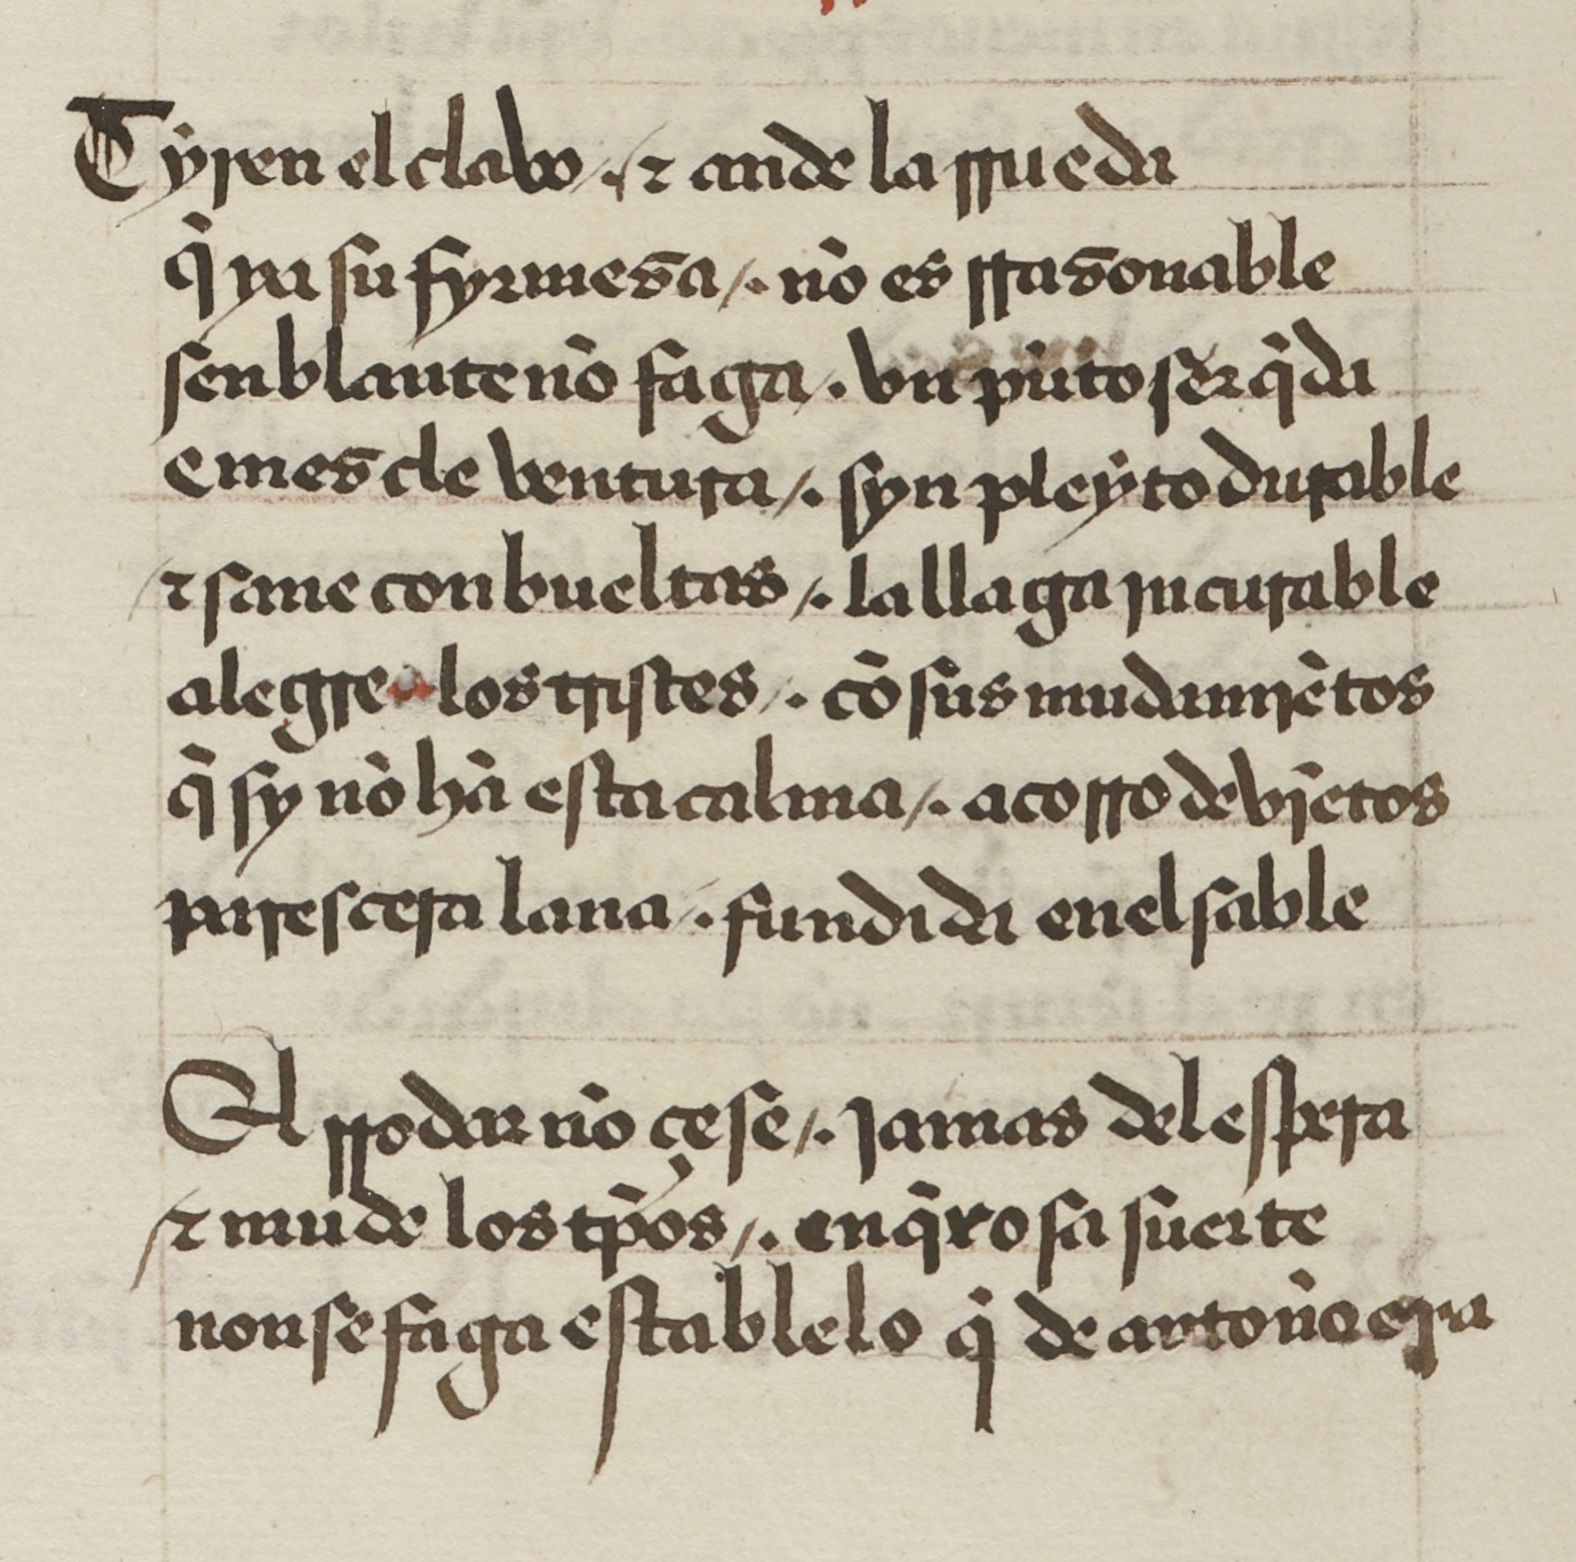 Tẏren el clavo /. ⁊ ande la rrueda
q̃ ya su fyrmeza /. nõ es rrazonable
senblante nõ faga /. vn pũto ser q̃da
e mezcle ventura /. syn pleẏto durable
⁊ sane con bueltas /. la llaga yncurable
alegre los tristes /. cõ sus mudamiẽtos
q̃ sy nõ hã esta calma /. acorro de viẽtos
parescera lana /. fundida en el sable
El rrodar nõ çese /. jamas del espera
⁊ mude los tp̃os /. en q̃xosa suerte
non se faga estable lo q̃ de antoño era